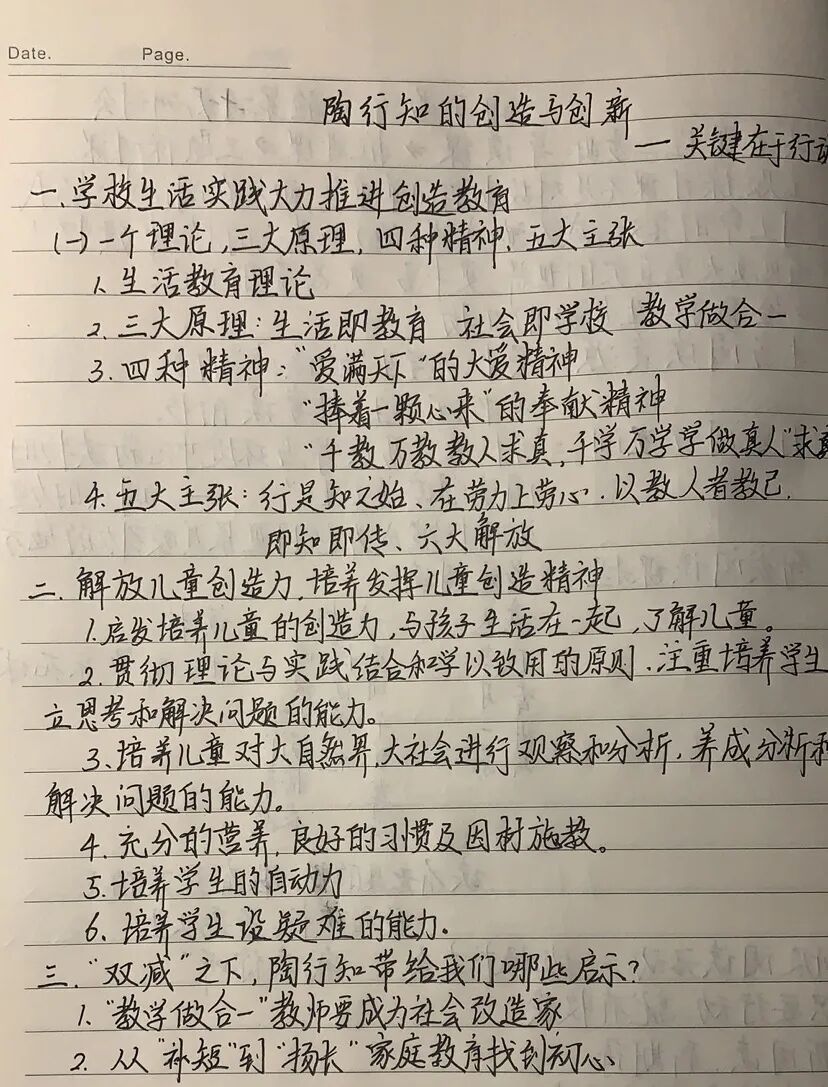 Date. Page.
陶行知的创造与创新
— 关键在于行动
一、学校生活实践大力推进创造教育
(一)一个理论,三大原理,四种精神,五大主张
1、生活教育理论
2、三大原理:生活即教育 社会即学校 教学做合一
3、四种精神:“爱满天下”的大爱精神
“捧着一颗心来”的奉献精神
“千教万教教人求真,千学万学学做真人”求真
4、五大主张:行是知之始、在劳力上劳心、以教人者教己、
即知即传、六大解放
二、解放儿童创造力,培养发挥儿童创造精神
1.启发培养儿童的创造力,与孩子生活在一起,了解儿童。
2.贯彻理论与实践结合和学以致用的原则、注重培养学生
立思考和解决问题的能力。
3、培养儿童对大自然界,大社会进行观察和分析,养成分析和
解决问题的能力。
4.充分的营养,良好的习惯及因材施教。
5.培养学生的自动力
6、培养学生设疑难的能力.
三、“双减”之下,陶行知带给我们哪些启示?
1.“教学做合一”教师要成为社会改造家
2、从“补短”到“扬长”家庭教育找到初心、